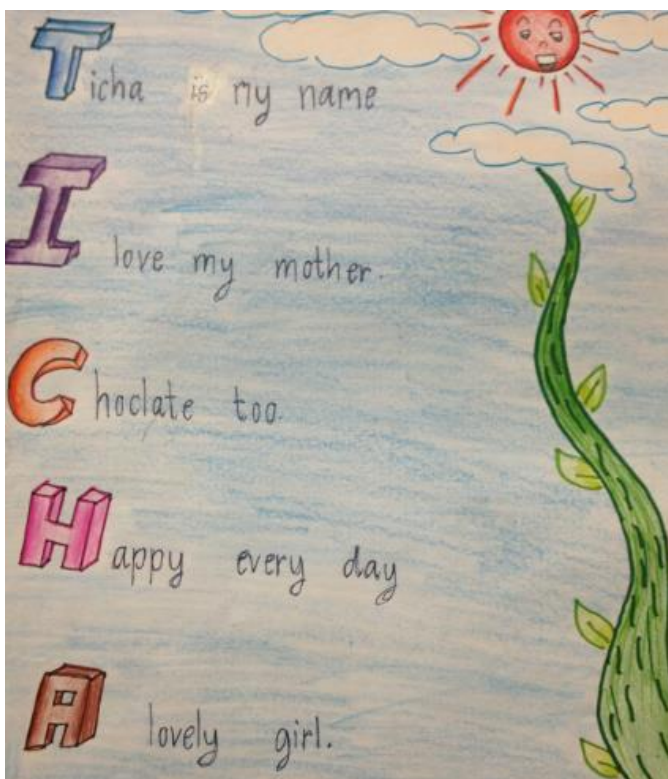 Ticha is my name
I love my mother.
Choclate too.
Happy every day
A lovely girl.